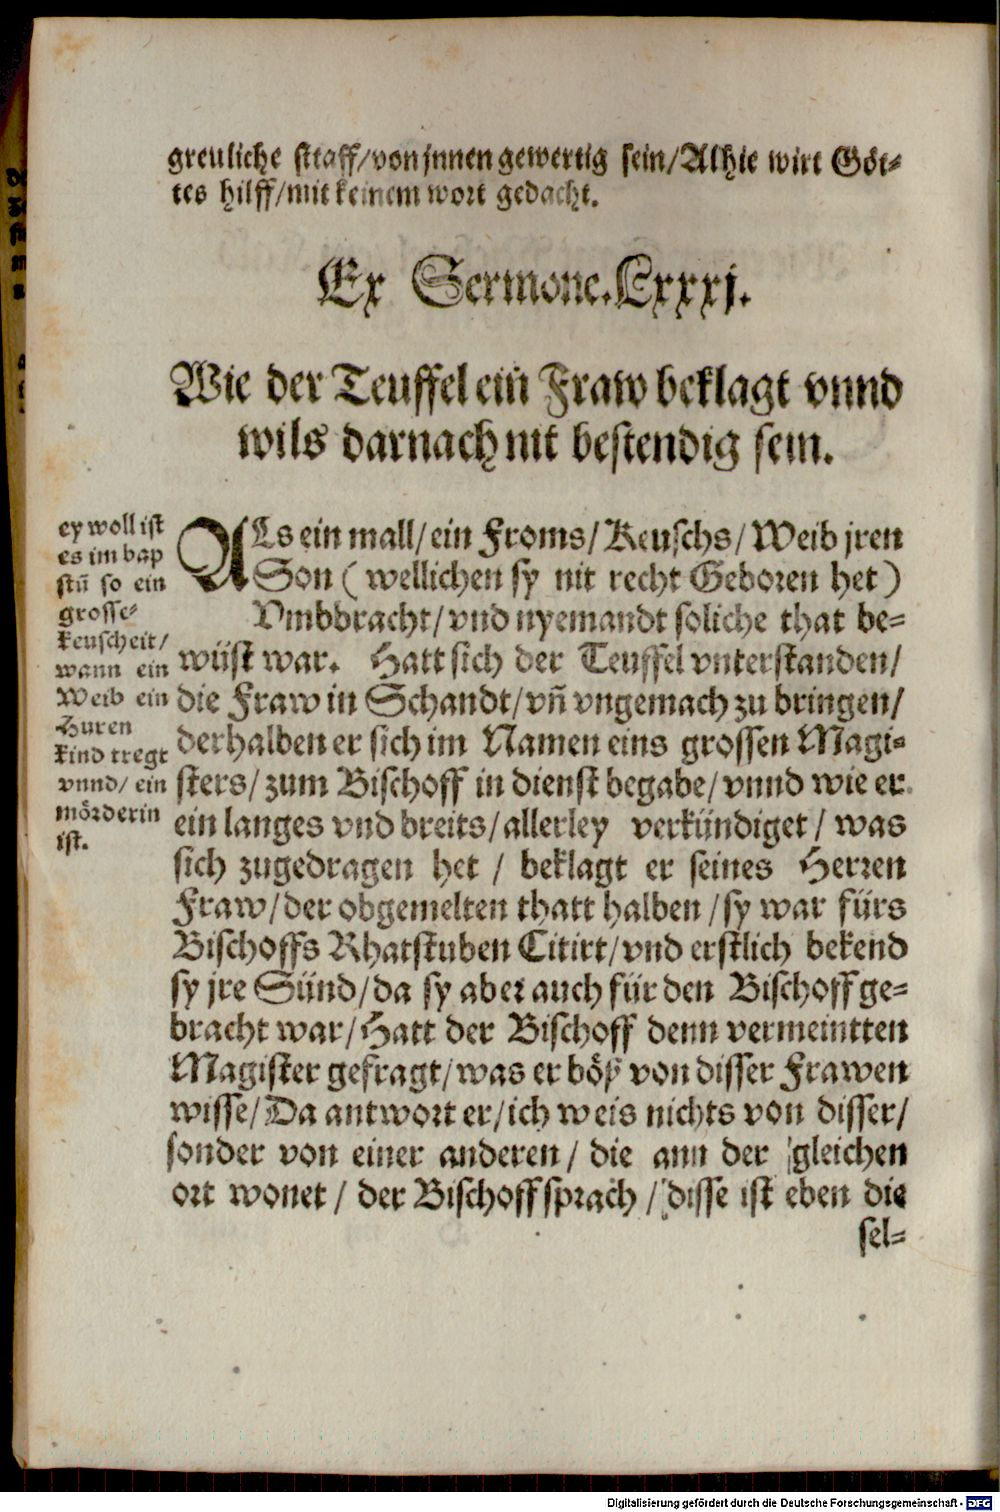 greuliche straff/von jnnen gewertig sein/Alhie wirt Göt-
tes hilff/mit keinem wort gedacht.
Ex Sermone.Lxxxj.
Wie der Teuffel ein Fraw beklagt vnnd
wils darnach nit bestendig sein.
ey woll ist
es im bap
stū so ein
grosse-
keuscheit/
wann ein
Weib ein
Huren
kind tregt
vnnd/ ein
mörderin
ist.
ALs ein mall/ein Froms/Keuschs/Weib jren
Son (wellichen sy nit recht Geboren het)
Vmbbracht/vnd nyemandt soliche that be-
wüst war. Hatt sich der Teuffel vnterstanden/
die Fraw in Schandt/vñ vngemach zu bringen/
derhalben er sich im Namen eins grossen Magi-
sters/zum Bischoff in dienst begabe/vnnd wie er
ein langes vnd breits/allerley verkündiget/was
sich zugedragen het/beklagt er seines Herren
Fraw/der obgemelten thatt halben/sy war fürs
Bischoffs Rhatstuben Citirt/vnd erstlich bekend
sy jre Sünd/da sy aber auch für den Bischoff ge-
bracht war/Hatt der Bischoff denn vermeintten
Magister gefragt/was er böß von disser Frawen
wisse/Da antwort er/ich weis nichts von disser/
sonder von einer anderen/die ann der gleichen
ort wonet/der Bischoff sprach/disse ist eben die
sel-
Digitalisierung gefördert durch die Deutsche Forschungsgemeinschaft - DFG